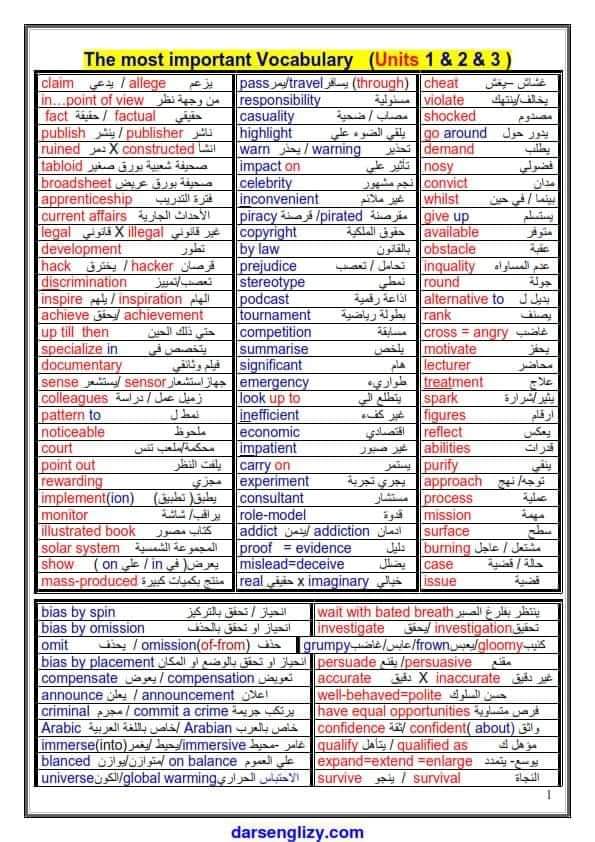 The most important Vocabulary (Units 1 & 2 & 3 )
claim يدعي / allege يزعم
in…point of view من وجهة نظر
fact حقيقة / factual حقيقي
publish ينشر / publisher ناشر
ruined دمر X constructed انشأ
tabloid صحيفة شعبية بورق صغير
broadsheet صحيفة بورق عريض
apprenticeship فترة التدريب
current affairs الأحداث الجارية
legal قانوني X illegal غير قانوني
development تطور
hack يخترق / hacker قرصان
discrimination تعصب/تمييز
inspire يلهم / inspiration الهام
achieve يحقق/ achievement
up till then حتي ذلك الحين
specialize in يتخصص في
documentary فيلم وثائقي
sense يستشعر/ sensor جهازاستشعار
colleagues زميل عمل / دراسة
pattern to نمط ل
noticeable ملحوظ
court محكمة/ملعب تنس
point out يلفت النظر
rewarding مجزي
implement(ion) يطبق( تطبيق)
monitor يراقب/ شاشة
illustrated book كتاب مصور
solar system المجموعة الشمسية
show ( on علي / in في )يعرض
mass-produced منتج بكميات كبيرة
pass يمر/travel يسافر (through)
responsibility مسئولية
casuality مصاب / ضحية
highlight يلقي الضوء علي
warn يحذر / warning تحذير
impact on تأثير علي
celebrity نجم مشهور
inconvenient غير ملائم
piracy قرصنة /pirated مقرصنة
copyright حقوق الملكية
by law بالقانون
prejudice تحامل / تعصب
stereotype نمطي
podcast اذاعة رقمية
tournament بطولة رياضية
competition مسابقة
summarise يلخص
significant هام
emergency طواريء
look up to يتطلع الي
inefficient غير كفء
economic اقتصادي
impatient غير صبور
carry on يستمر
experiment يجري تجربة
consultant مستشار
role-model قدوة
addict يدمن/ addiction ادمان
proof = evidence دليل
mislead=deceive يضلل
real حقيقي x imaginary خيالي
cheat غشاش –يغش
violate يخالف/ينتهك
shocked مصدوم
go around يدور حول
demand يطلب
nosy فضولي
convict مدان
whilst بينما / في حين
give up يستسلم
available متوفر
obstacle عقبة
inquality عدم المساواه
round جولة
alternative to بديل ل
rank يصنف
cross = angry غاضب
motivate يحفز
lecturer محاضر
treatment علاج
spark يثير/شرارة
figures ارقام
reflect يعكس
abilities قدرات
purify ينقي
approach توجه/ نهج
process عملية
mission مهمة
surface سطح
burning مشتعل / عاجل
case حالة / قضية
issue قضية
bias by spin انحياز / تحقق بالتركيز
bias by omission انحياز او تحقق بالحذف
omit يحذف / omission(of-from) حذف
bias by placement انحياز او تحقق بالوضع او المكان
compensate يعوض / compensation تعويض
announce يعلن / announcement اعلان
criminal مجرم / commit a crime يرتكب جريمة
Arabic خاص باللغة العربية/ Arabian خاص بالعرب
immerse(into)يغمر/يحيط/immersive غامر -محيط
blanced متوازن/يوازن/ on balance علي العموم
universe الكون/global warming الاحتباس الحراري
wait with bated breath ينتظر بفارغ الصبر
investigate يحقق/ investigation تحقيق
grumpy عابس/غاضب/frown يعبس/gloomy كئيب
persuade يقنع /persuasive مقنع
accurate دقيق X inaccurate غير دقيق
well-behaved=polite حسن السلوك
have equal opportunities فرص متساوية
confidence ثقة/ confident( about) واثق
qualify يتأهل / qualified as مؤهل ك
expand=extend =enlarge يوسع- يتمدد
survive ينجو / survival النجاة
1
darsenglizy.com